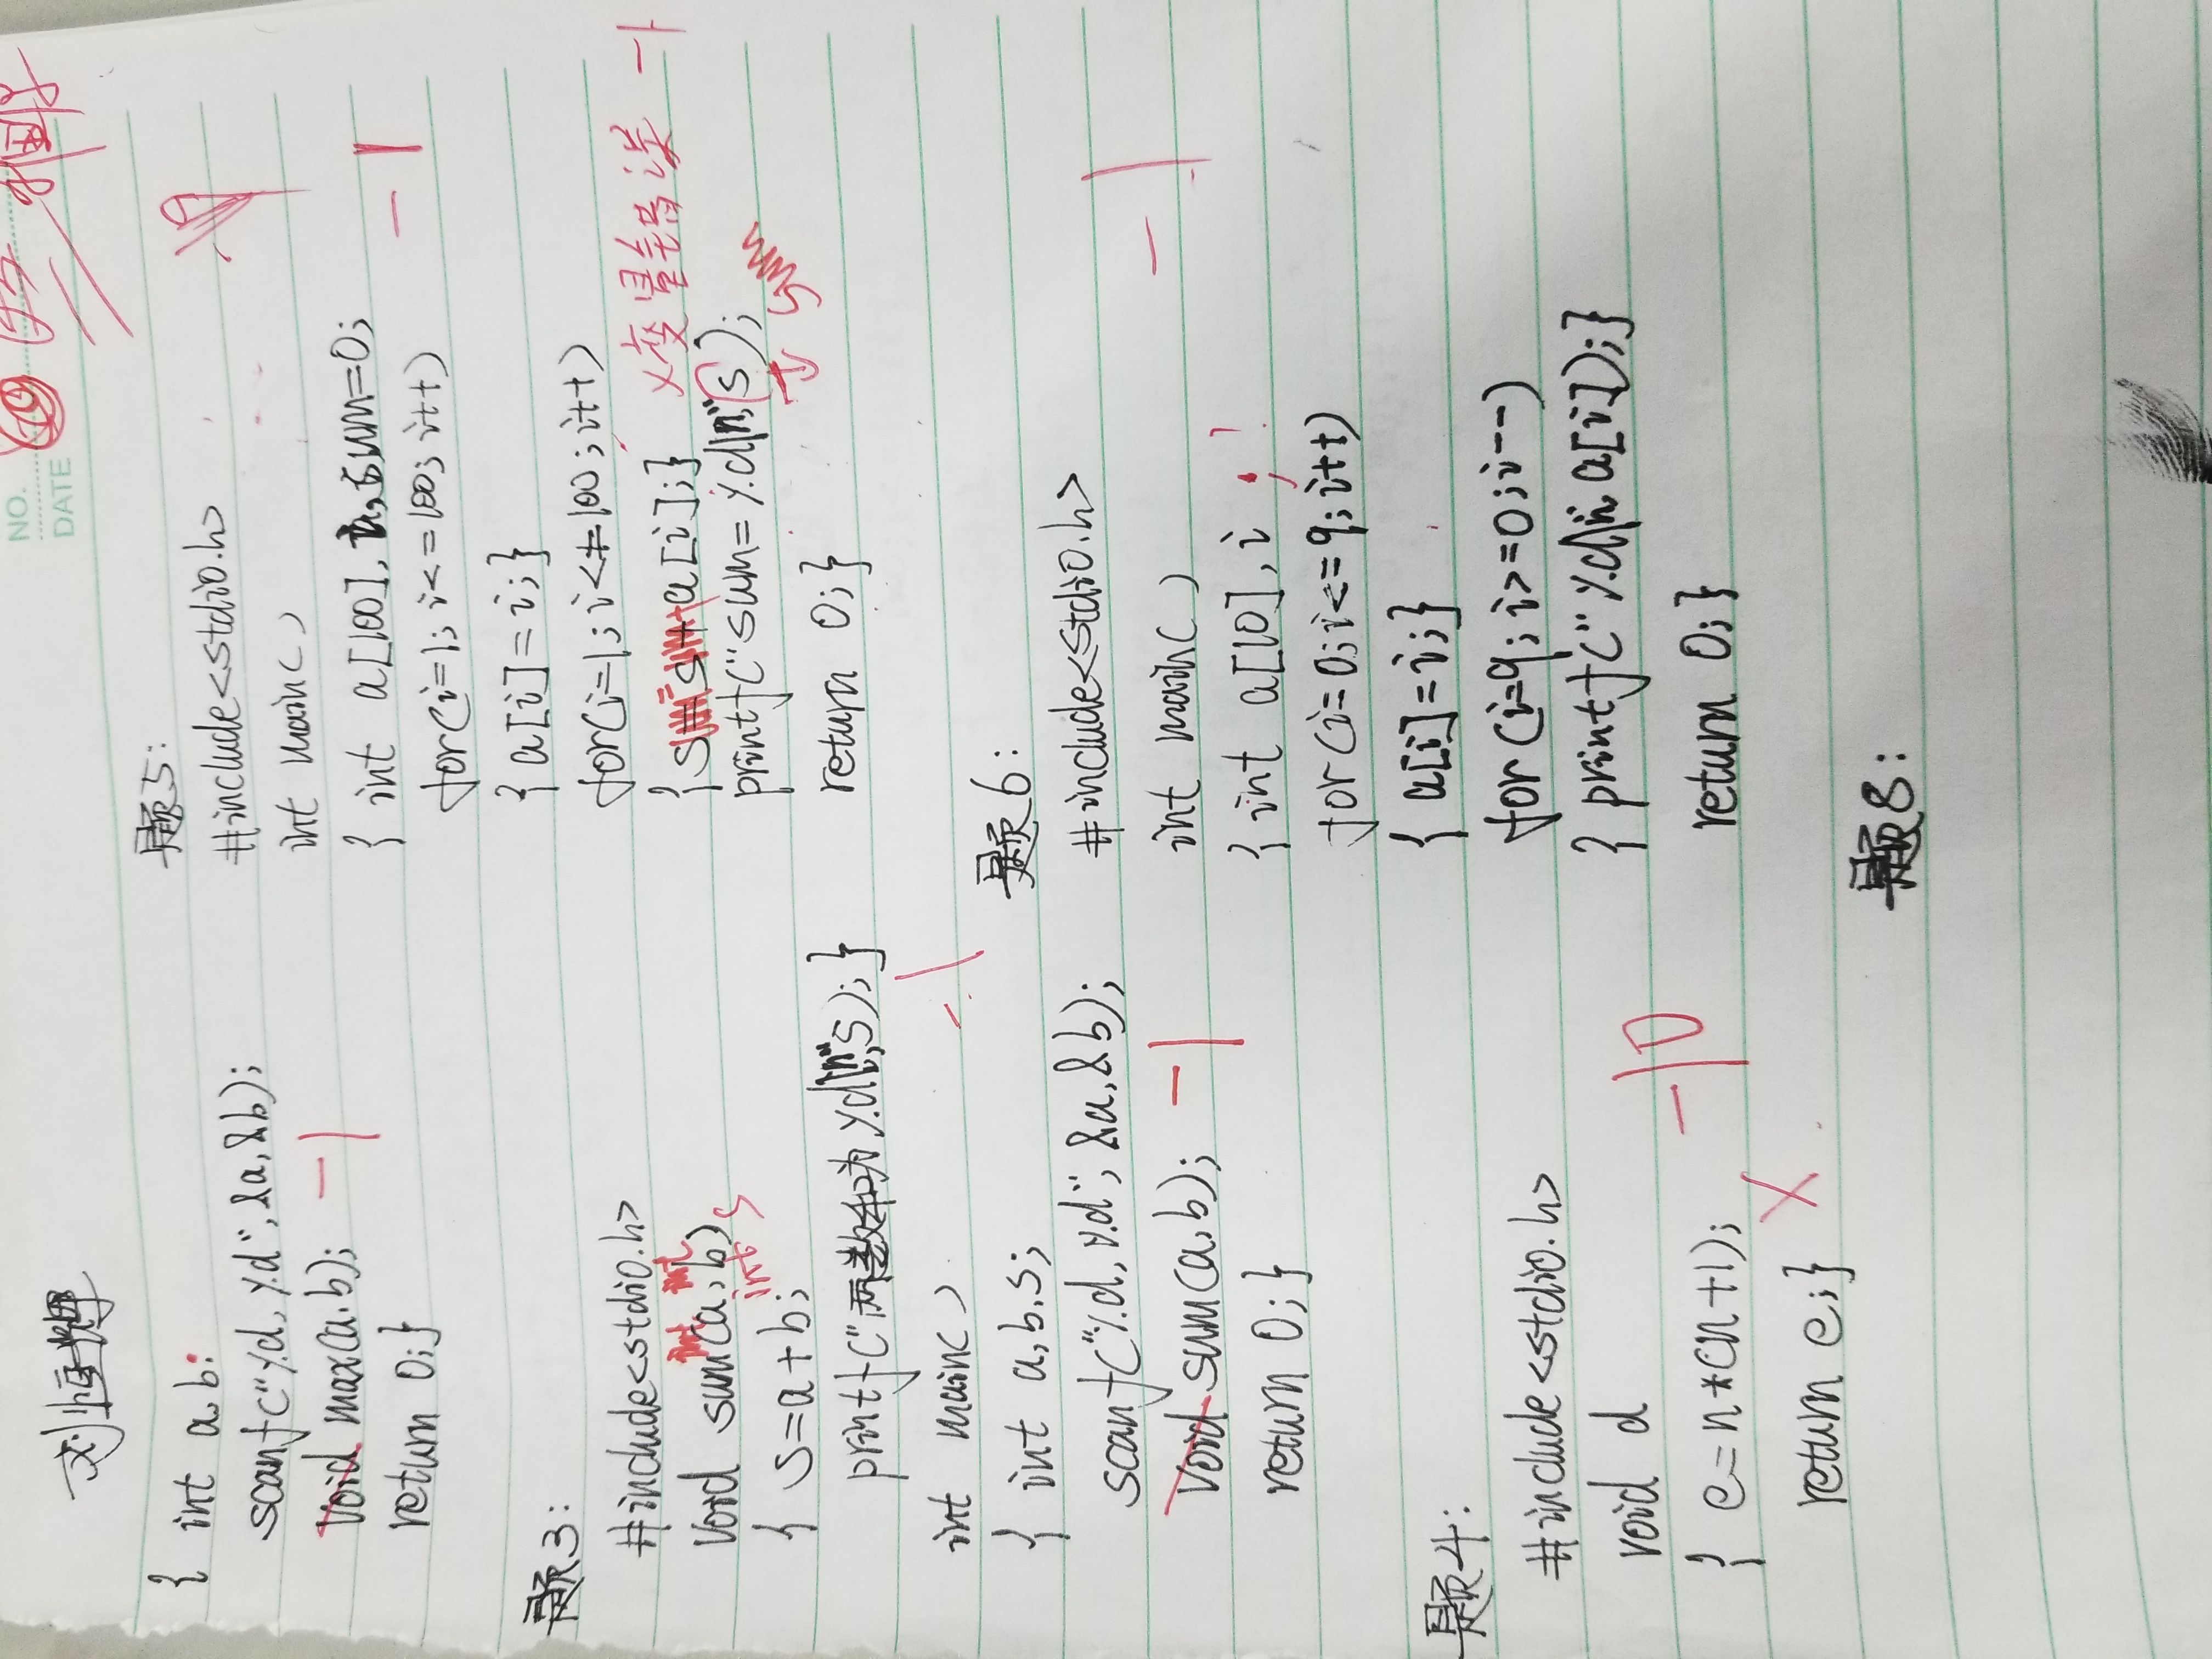 NO.
DATE
刘恒辉
{ int a,b;
scanf("%d,%d",&a,&b);
void max(a,b); -1
return 0;}
题3:
#include<stdio.h>
int int
void sum(a,b)
int s
{ s=a+b;
printf("两数和为%d\n",s);}
-1
int main()
{ int a,b,s;
scanf("%d,%d",&a,&b);
void sum(a,b); -1
return 0;}
题4:
#include<stdio.h>
void d
-10
{ e=n*(n+1);
return e;} ×
题5:
#include<stdio.h>
int main()
{ int a[100], sum=0;
-1
for(i=1;i<=100;i++)
{a[i]=i;}
for(i=1;i<=100;i++)
{sum=sum+a[i];} ×变量错误 -1
printf("sum=%d\n",s);
sum
return 0;}
题6:
#include<stdio.h>
-1
int main()
{ int a[10],i ;
for(i=0;i<=9;i++)
{ a[i]=i;}
for(i=9;i>=0;i--)
{ printf("%d\n",a[i]);}
return 0;}
题8: